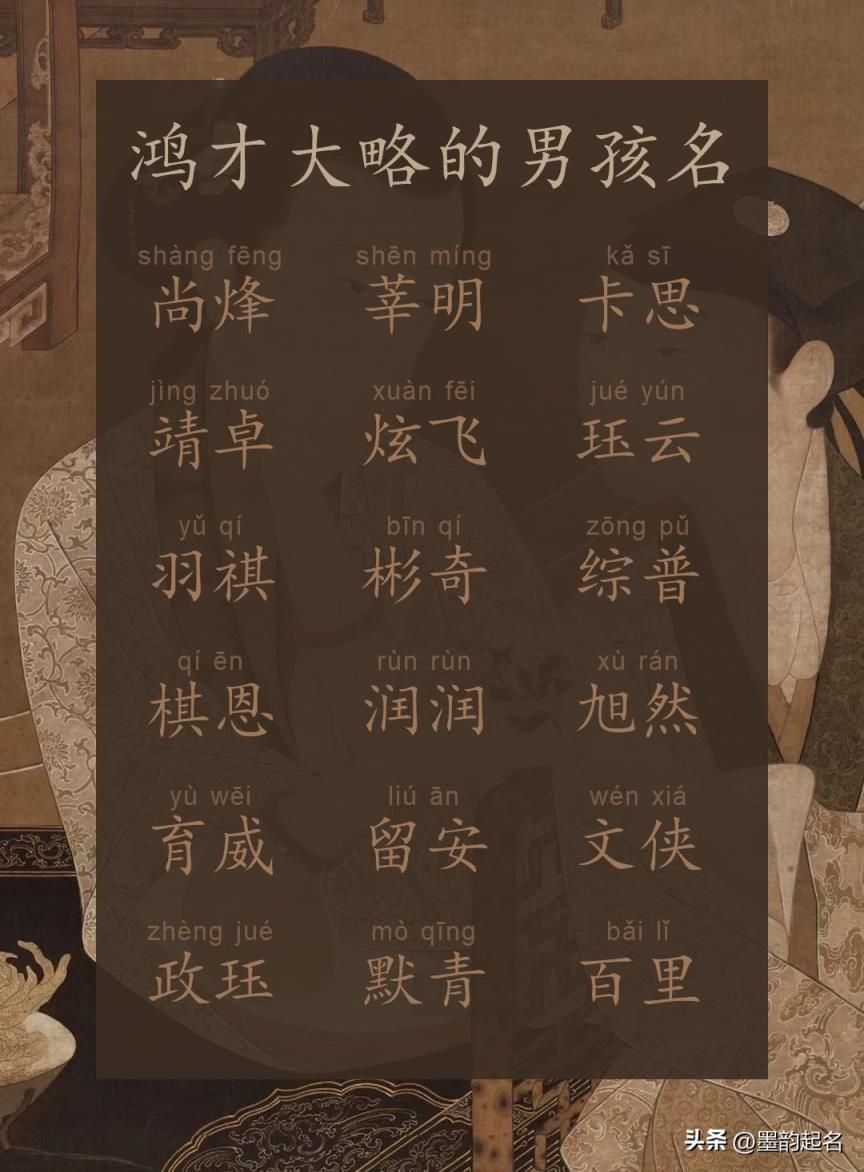 鸿才大略的男孩名
shàng fēng shēn míng kǎ sī
尚烽 莘明 卡思
jìng zhuó xuàn fēi jué yún
靖卓 炫飞 珏云
yǔ qí bīn qí zōng pǔ
羽祺 彬奇 综普
qí ēn rùn rùn xù rán
棋恩 润润 旭然
yù wēi liú ān wén xiá
育威 留安 文侠
zhèng jué mò qīng bǎi lǐ
政珏 默青 百里
头条 @墨韵起名